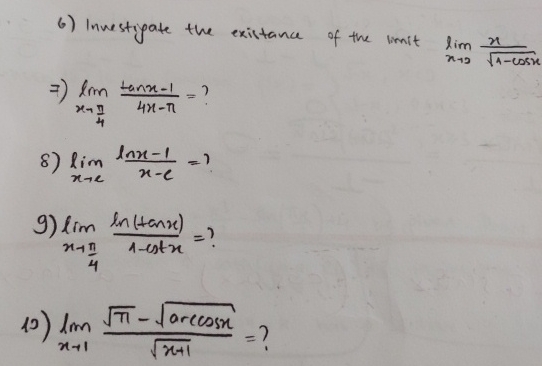 6) Investigate the existance of the limit lim x→0 x/√1-cosx
7) lim x→π/4 tanx-1/4x-π = ?
8) lim x→e lnx-1/x-e = ?
9) lim x→π/4 ln(tanx)/1-cotx = ?
10) lim x→1 √π - √arccosx/√x+1 = ?